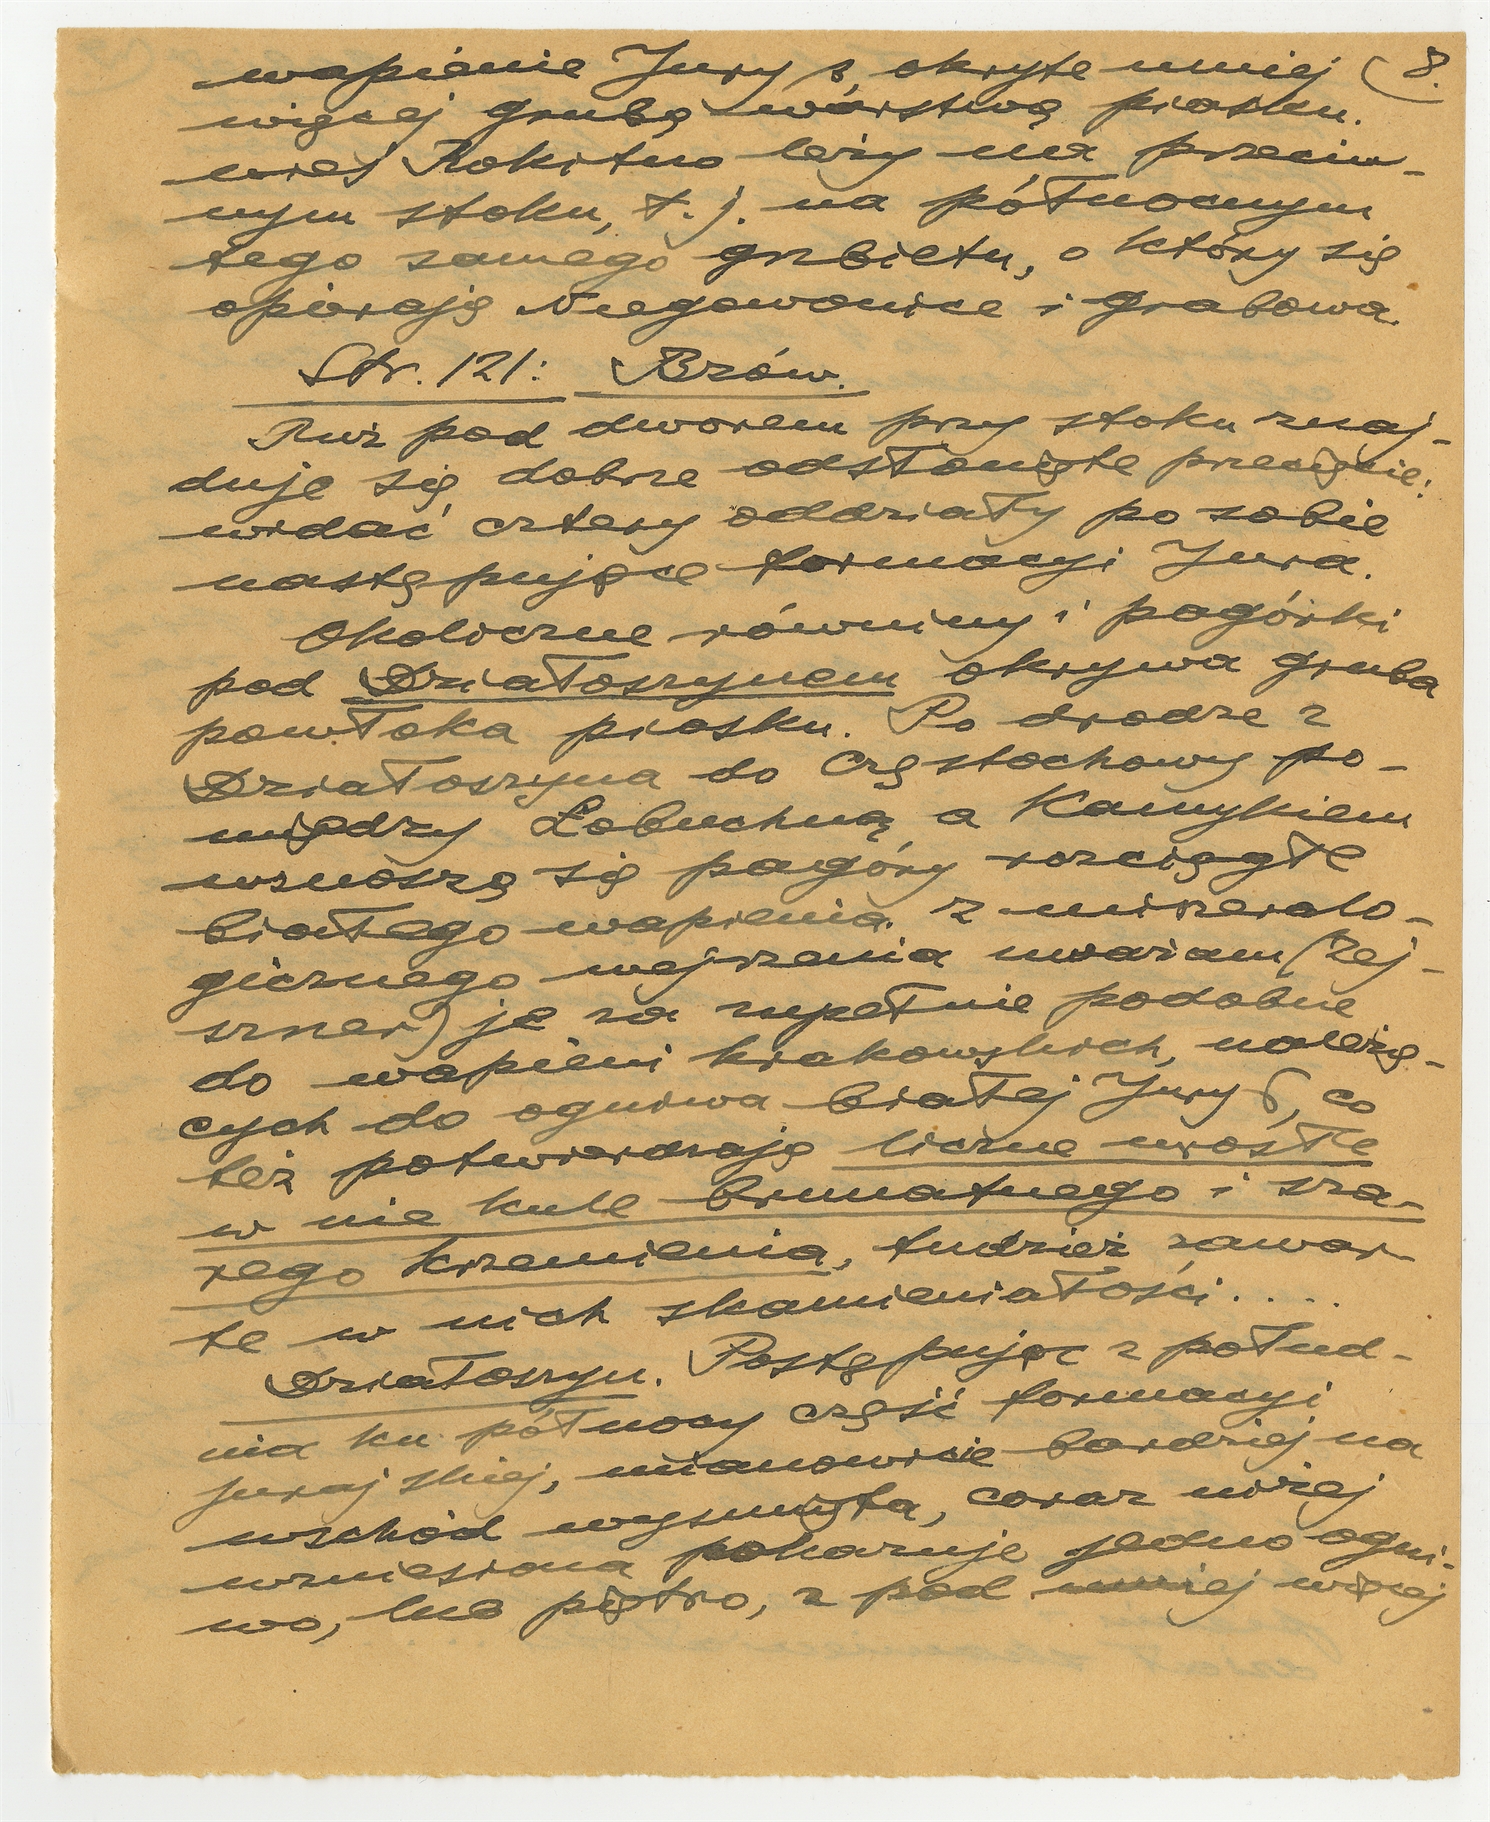 wapienie Jury są okryte mniej (8.
więcej grubą warstwą piasku.
wieś Rokitno leży na przeciw-
nym stoku, t.j. na północnym
tego samego grzbietu, o który się
opierają Niegowonice i Grabowa.
Str. 121: Brzów.
Tuż pod dworem przy stoku znaj-
duje się dobrze odsłonięte przecięcie:
widać cztery oddziały po sobie
następujące formacyi Jura.
Okoliczne równiny i pagórki
pod Działoszynem okrywa gruba
powłoka piasku. Po drodze z
Działoszyna do Częstochowy po-
między Łobuchną a Kamykiem
wznoszą się pagóry rozciągłe
białego wapienia. Z mineralo-
gicznego wejrzenia uważam (Zej-
szner) je za zupełnie podobne
do wapieni krakowskich, należą-
cych do ogniwa białej Jury δ, co
też potwierdzają liczne wrosłe
w nie kule brunatnego i sza-
rego krzemienia, tudzież zawar-
te w nich skamieniałości....
Działoszyn. Postępując z połud-
nia ku północy część formacyi
jurajskiej, mianowicie bardziej na
wschód wysunięta, coraz niżej
wzniesiona pokazuje jedno ogni-
wo, lub piętro, z pod mniej więcej